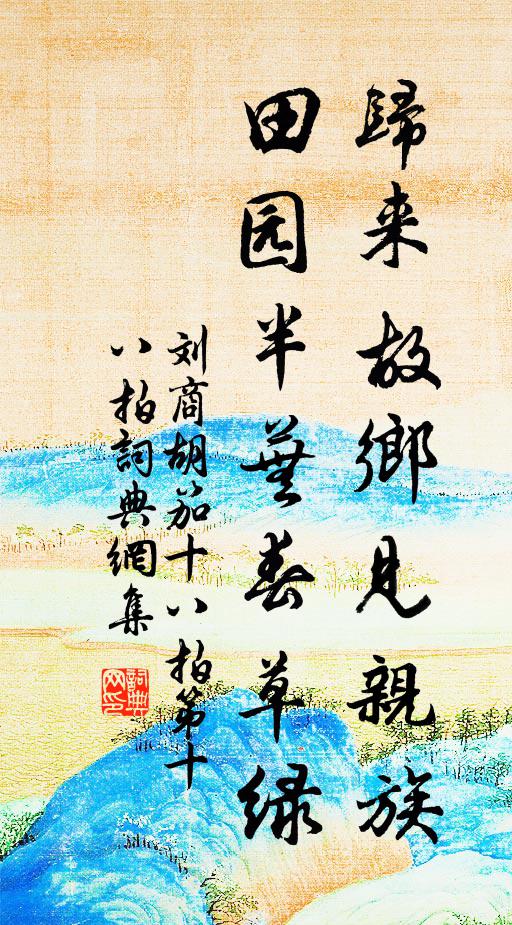 歸来故鄉見親族
田园半蕪春草绿
刘商胡笳十八拍第十
八拍詞典網集
詞典
网印